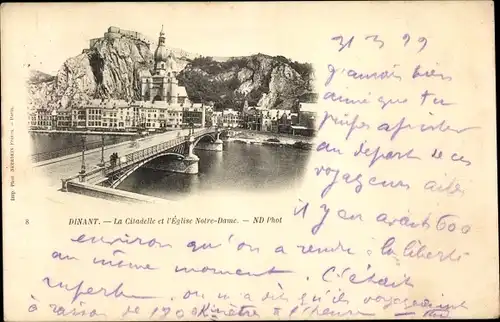 31 3 99
j'aurais bien
aimé que tu
puisses assister
au départ de ces
voyageurs ailés
il y en avait 600
environ qu'on a rendu à la liberté
au même moment c'était
superbe on m'a dit qu'ils voyageaient
à raison de kilomètres à l'heure
8 DINANT. — La Citadelle et l'Église Notre-Dame. — ND Phot
Imp. Phot. NEURDEIN Frères. — Paris.